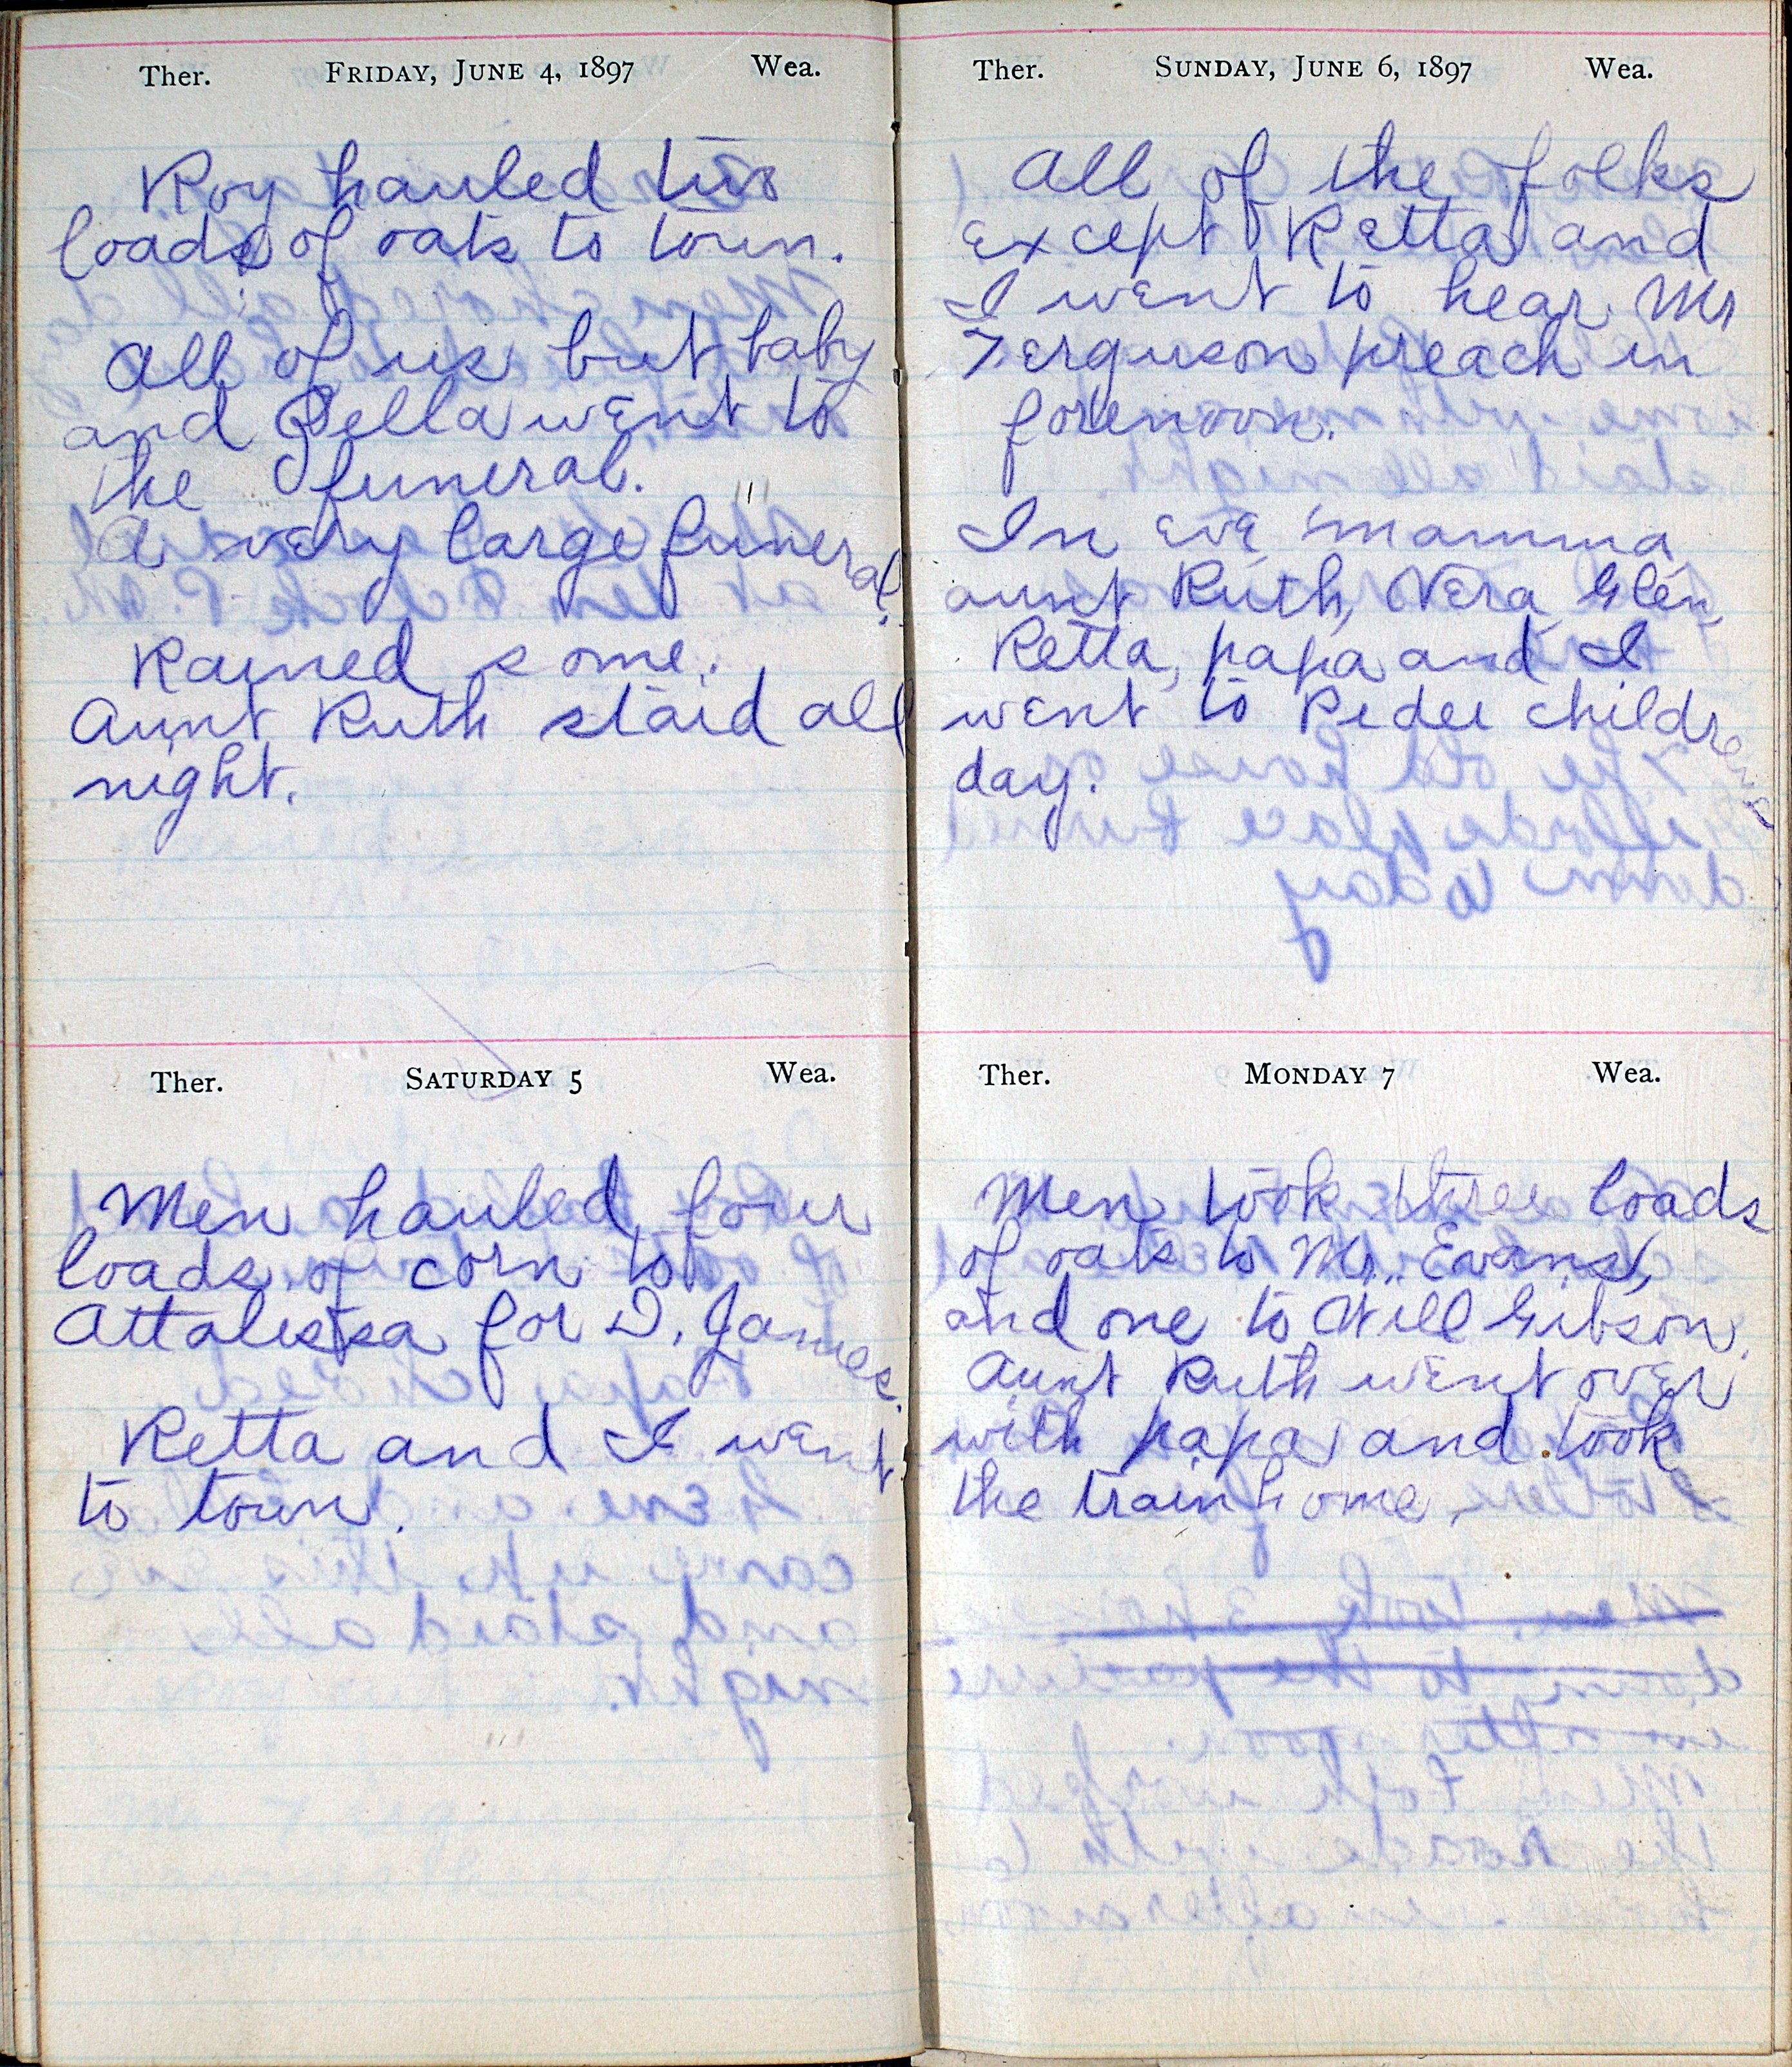 Ther. FRIDAY, JUNE 4, 1897 Wea.
Roy hauled two
loads of oats to town.
All of us but baby
and Bella went to
the funeral.
A very large funeral.
Rained some.
Aunt Ruth staid all
night.
Ther. SATURDAY 5 Wea.
Men hauled four
loads of corn to
Attalissa for D. James.
Retta and I went
to town.
Ther. SUNDAY, JUNE 6, 1897 Wea.
All of the folks
except Retta and
I went to hear Mr
Ferguson preach in
forenoon.
In eve mamma
aunt Ruth, Vera Glen
Retta, papa and I
went to Pedee childrens
day.
Ther. MONDAY 7 Wea.
Men took three loads
of oats to Mr. Evans,
and one to Will Gibson.
Aunt Ruth went over
with papa and took
the train home.